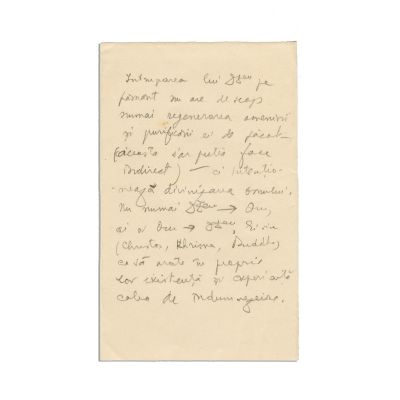 Întruparea lui Dzeu pe
pământ nu are de scop
numai regenerarea omenirii
și purificarea ei de păcat
(aceasta s'ar putea face
indirect) — ci intențio-
nează divinizarea omului.
Nu numai Dzeu → Om,
ci și Om → Dzeu,
(Christos, Khrisna, Buddh)
ca să arate în propria
lor existență și experiență
calea de îndumnezeire.